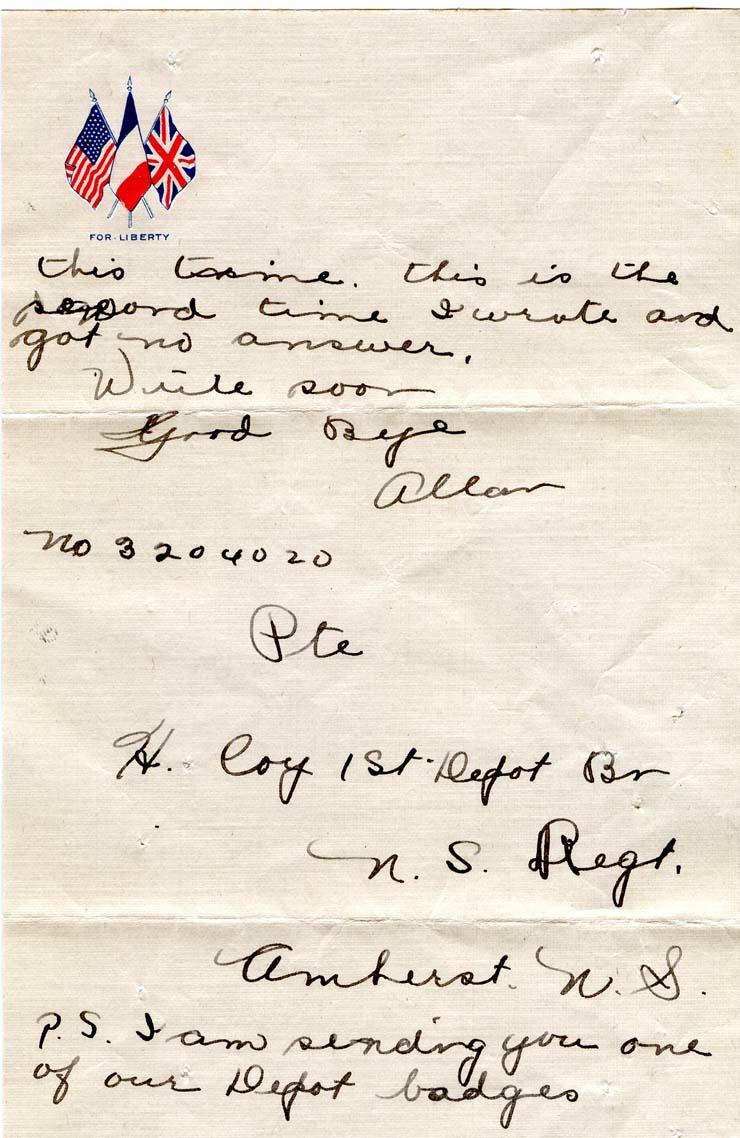 FOR LIBERTY
this time. this is the
second time I wrote and
got no answer.
Write soon
Good Bye
Allan
No 3204020
Pte
H. Coy 1st Depot Bn
N. S. Regt.
Amherst. N. S.
P. S. I am sending you one
of our Depot badges